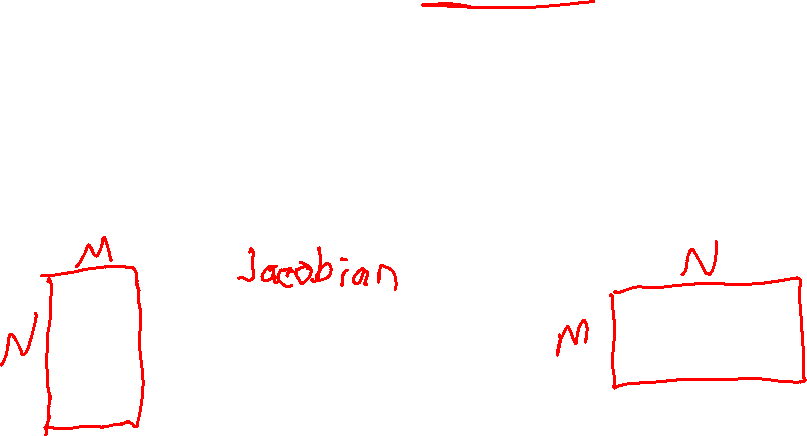 M
Jacobian
N
N
M